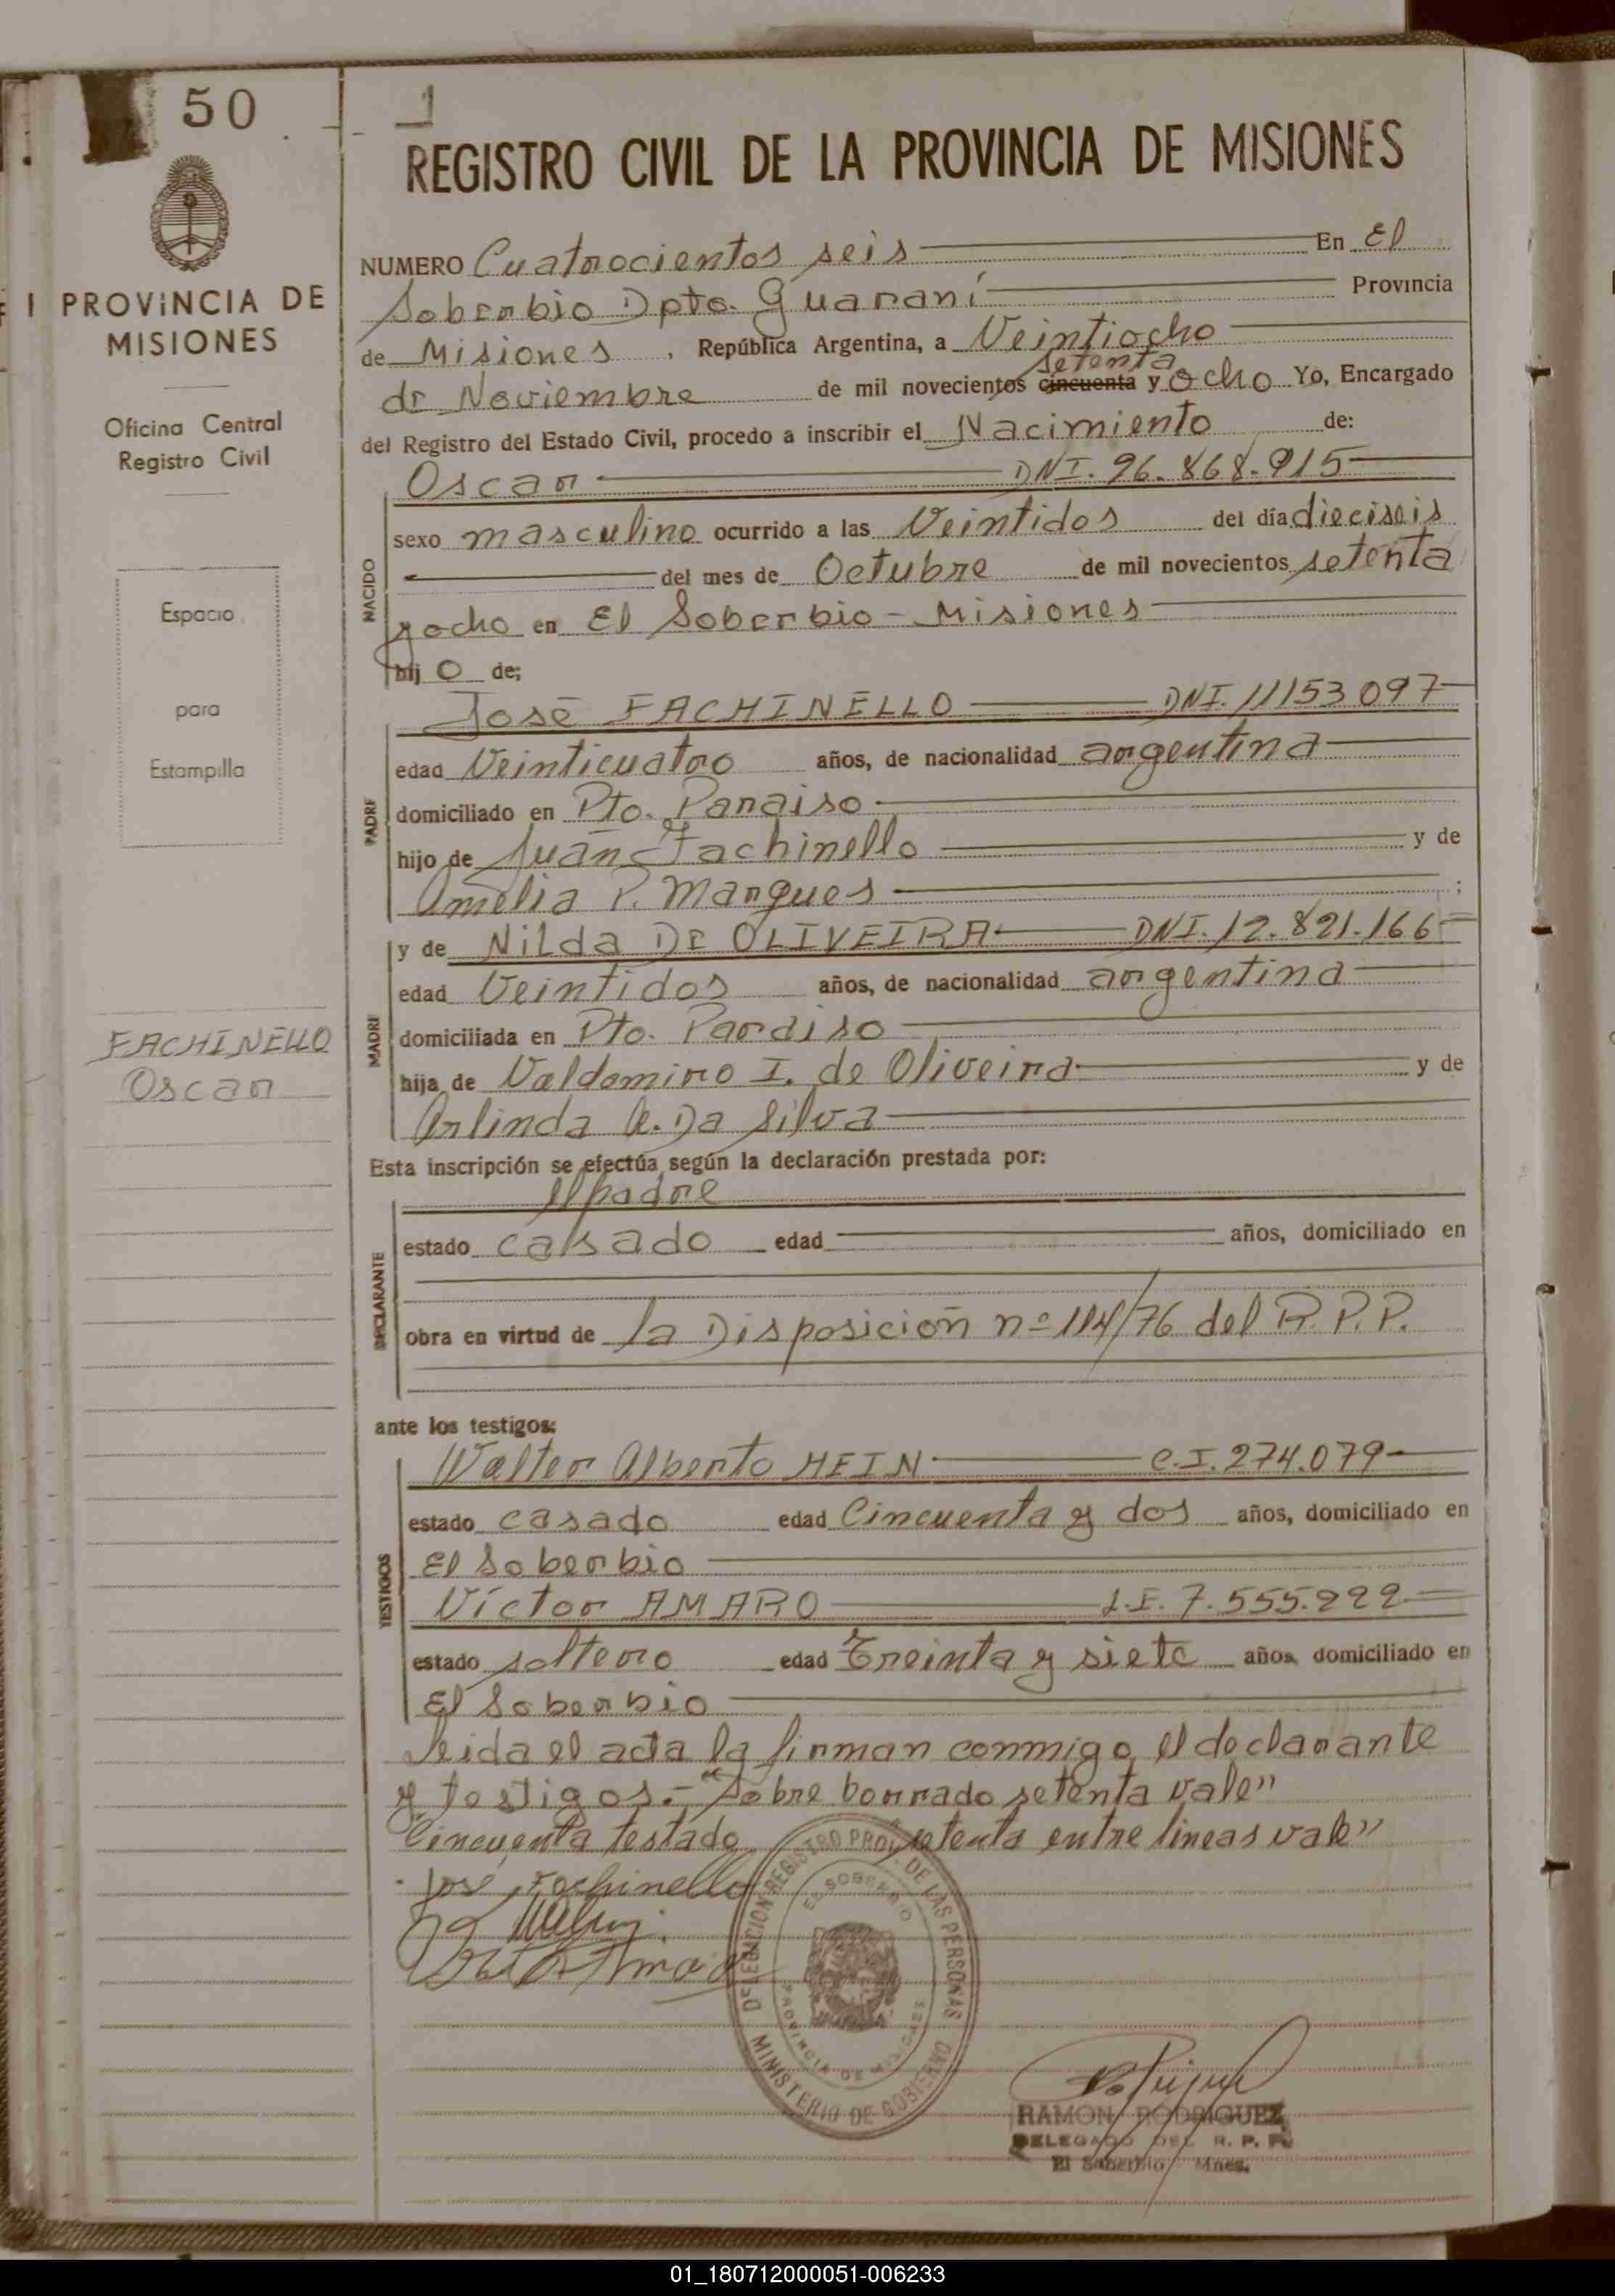 50
1
REGISTRO CIVIL DE LA PROVINCIA DE MISIONES
NUMERO Cuatrocientos seis En El
Soberbio Dpto. Guaraní Provincia
de Misiones, República Argentina, a Veintiocho
setenta
de Noviembre de mil novecientos cincuenta y ocho Yo, Encargado
del Registro del Estado Civil, procedo a inscribir el Nacimiento de:
Oscar DNI. 26.868.915
NACIDO
sexo masculino ocurrido a las Veintidos del día dieciseis
del mes de Octubre de mil novecientos setenta
y ocho en El Soberbio - Misiones
hij o de;
José FACHINELLO DNI. 11153.097
PADRE
edad Veinticuatro años, de nacionalidad argentina
domiciliado en Pto. Paraiso
hijo de Juan Fachinello y de
Amelia P. Marques ;
y de Nilda DE OLIVEIRA DNI. 12.821.166
MADRE
edad Veintidos años, de nacionalidad argentina
domiciliada en Pto. Paraiso
hija de Valdomiro I. de Oliveira y de
Arlinda A. Da Silva
Esta inscripción se efectúa según la declaración prestada por:
el padre
DECLARANTE
estado casado edad años, domiciliado en
obra en virtud de la Disposición nº 114/76 del R.P.P.
ante los testigos:
Walter Alberto HEIN C.I. 274.079
TESTIGOS
estado casado edad Cincuenta y dos años, domiciliado en
El Soberbio
Víctor AMARO L.E. 7.555.222
estado soltero edad Treinta y siete años domiciliado en
El Soberbio
Leida el acta la firman conmigo el declarante
y testigos.- "Sobre borrado setenta vale"
Cincuenta testado, "setenta entre lineas vale"
José Fachinello
DELEGACION REGISTRO PROV. DE LAS PERSONAS
EL SOBERBIO
PROVINCIA DE MISIONES
MINISTERIO DE GOBIERNO
RAMON RODRIGUEZ
DELEGADO DEL R. P. P.
El Soberbio - Mnes.
PROVINCIA DE
MISIONES
Oficina Central
Registro Civil
Espacio
para
Estampilla
FACHINELLO
Oscar
01_180712000051-006233